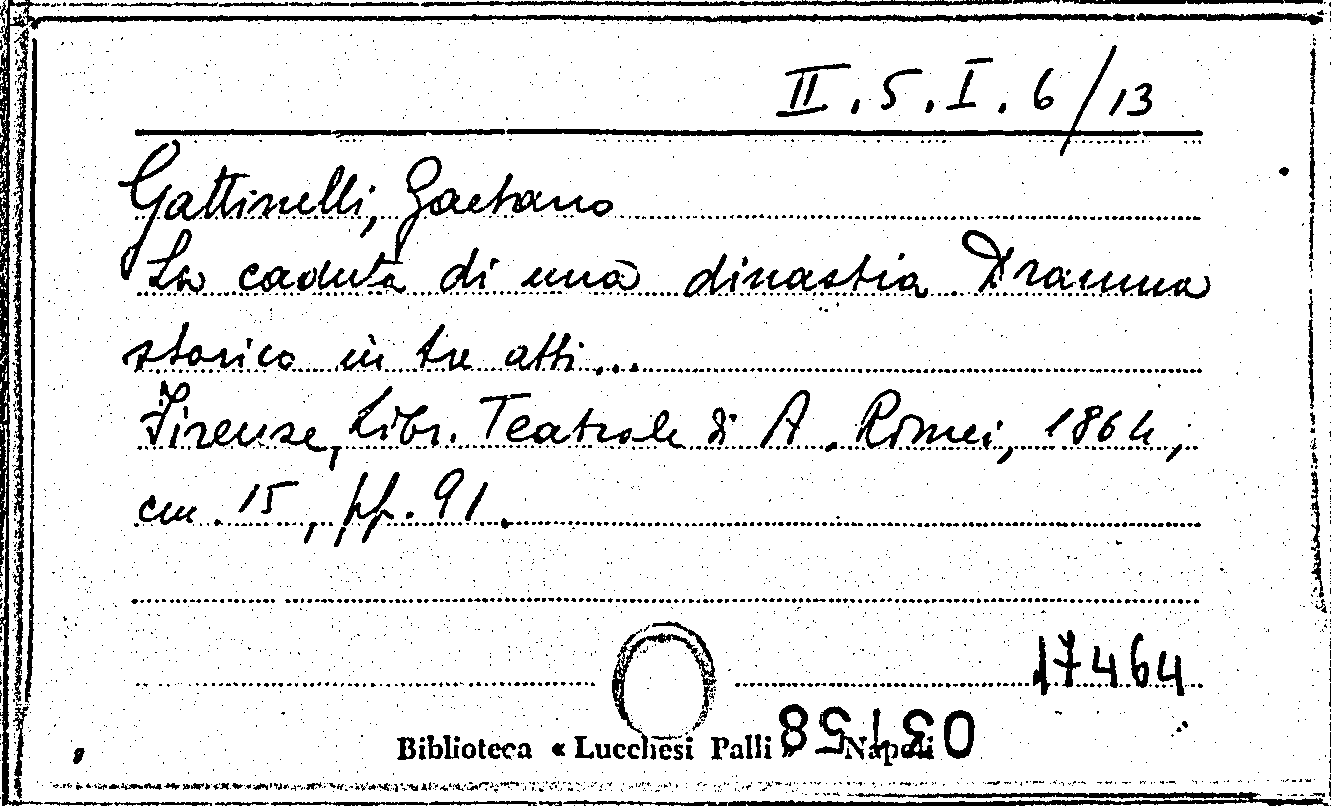 II.5.I.6/13
Gattinelli, Gaetano
La caduta di una dinastia Dramma
storico in tre atti...
Firenze, Libr. Teatrale di A. Romei, 1864,
cm. 15, pp. 91.
17464
Biblioteca « Lucchesi Palli » Napoli